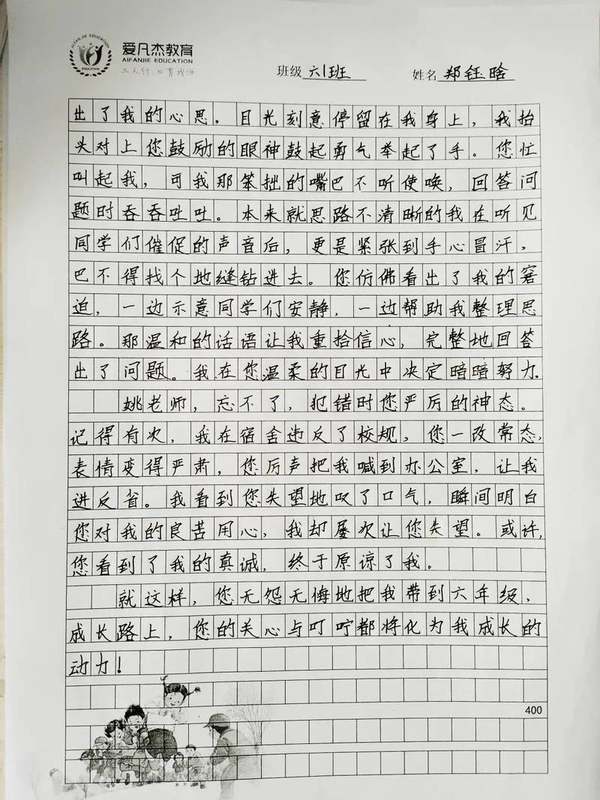 爱凡杰教育
AIFANJIE EDUCATION
班级 六1班 姓名 郑钰晗
出了我的心思。目光刻意停留在我身上，我抬
头对上您鼓励的眼神鼓起勇气举起了手。您忙
叫起我，可我那笨拙的嘴巴不听使唤，回答问
题时吞吞吐吐。本来就思路不清晰的我在听见
同学们催促的声音后，更是紧张到手心冒汗，
巴不得找个地缝钻进去。您仿佛看出了我的窘
迫，一边示意同学们安静，一边帮助我整理思
路。那温和的话语让我重拾信心，完整地回答
出了问题。我在您温柔的目光中决定暗暗努力.
姚老师，忘不了，犯错时您严厉的神态。
记得有次，我在宿舍违反了校规，您一改常态，
表情变得严肃，您厉声把我喊到办公室，让我
进反省。我看到您失望地叹了口气，瞬间明白
您对我的良苦用心，我却屡次让您失望。或许，
您看到了我的真诚，终于原谅了我。
就这样，您无怨无悔地把我带到六年级，
成长路上，您的关心与叮咛都将化为我成长的
动力！
400